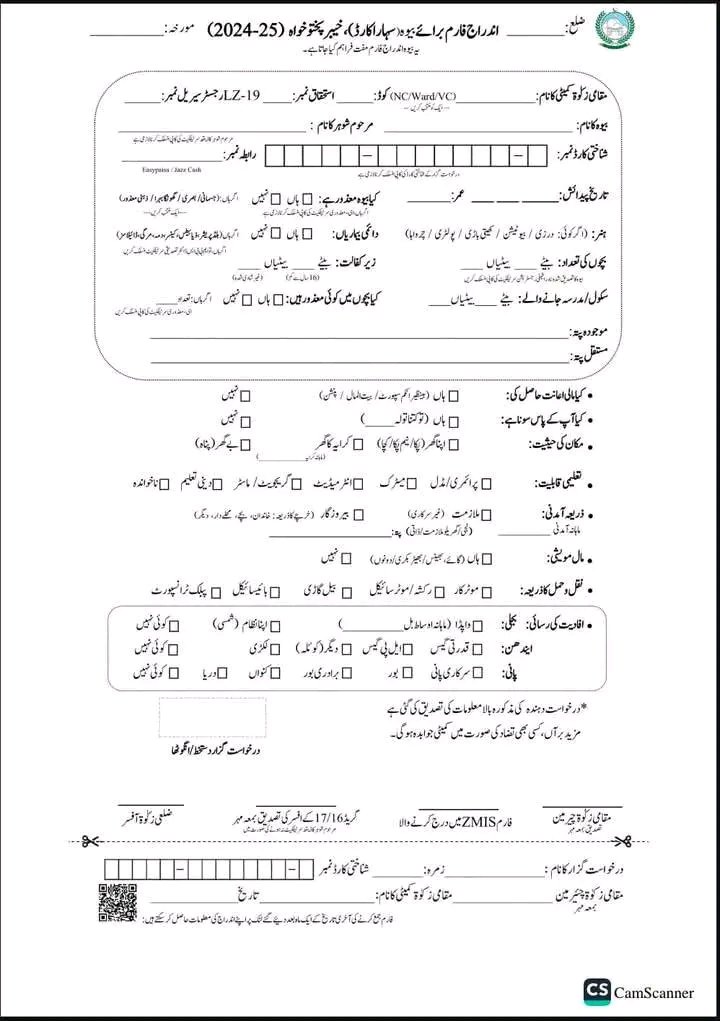 ضلع: ________ اندراج فارم برائے بیوہ (سہارا کارڈ)، خیبر پختونخواہ (2024-25) مورخہ: ________
یہ بیوہ اندراج فارم مفت فراہم کیا جاتا ہے۔
مقامی زکوٰۃ کمیٹی کا نام: ________ (NC/Ward/VC) کوڈ: ____ استحقاق نمبر: ____ LZ-19 رجسٹر سیریل نمبر: ____
بیوہ کا نام: ________ مرحوم شوہر کا نام: ________
شناختی کارڈ نمبر: رابطہ نمبر: ________
درخواست گزار کے شناختی کارڈ کی کاپی منسلک کرنا لازمی ہے
Easypaisa / Jazz Cash
تاریخ پیدائش: ________ عمر: ____ کیا بیوہ معذور ہے: ☐ ہاں ☐ نہیں اگر ہاں: (جسمانی / بصری / گونگا بہرا / ذہنی معذور)
ہنر: (اگر کوئی: درزی / بیوٹیشن / کھیتی باڑی / پولٹری / چرواہا) دائمی بیماریاں: ☐ ہاں ☐ نہیں
بچوں کی تعداد: بیٹے ____ بیٹیاں ____ زیر کفالت: بیٹے ____ بیٹیاں ____
(16 سال سے کم) (غیر شادی شدہ)
سکول/مدرسہ جانے والے: بیٹے ____ بیٹیاں ____ کیا بچوں میں کوئی معذور ہیں: ☐ ہاں ☐ نہیں اگر ہاں: تعداد ____
موجودہ پتہ: ________
مستقل پتہ: ________
• کیا مالی اعانت حاصل کی: ☐ ہاں (بینظیر انکم سپورٹ / بیت المال / پنشن) ☐ نہیں
• کیا آپ کے پاس سونا ہے: ☐ ہاں (تو کتنا تولہ ____) ☐ نہیں
• مکان کی حیثیت: ☐ اپنا گھر (پکا/نیم پکا/کچا) ☐ کرایہ کا گھر ☐ بے گھر (پناہ)
(ماہانہ کرایہ ________)
• تعلیمی قابلیت: ☐ پرائمری/مڈل ☐ میٹرک ☐ انٹرمیڈیٹ ☐ گریجویٹ/ ماسٹر ☐ دینی تعلیم ☐ ناخواندہ
• ذریعہ آمدنی: ☐ ملازمت (غیر سرکاری) ☐ بیروزگار (خرچے کا ذریعہ: خاندان، بچے، محلے دار، دیگر)
ماہانہ آمدنی ________ (نجی/گھریلو ملازمت/ذاتی) پتہ: ________
• مال مویشی: ☐ ہاں (گائے، بھینس/بھیڑ بکری/دونوں) ☐ نہیں
• نقل و حمل کا ذریعہ: ☐ موٹر کار ☐ رکشہ/موٹر سائیکل ☐ بیل گاڑی ☐ بائیسائیکل ☐ پبلک ٹرانسپورٹ
• افادیت کی رسائی: بجلی: ☐ واپڈا (ماہانہ اوسط بل ________) ☐ اپنا نظام (شمسی) ☐ کوئی نہیں
ایندھن: ☐ قدرتی گیس ☐ ایل پی گیس ☐ دیگر (کوئلہ) ☐ لکڑی ☐ کوئی نہیں
پانی: ☐ سرکاری پانی ☐ بور ☐ برادری بور ☐ کنواں ☐ دریا ☐ کوئی نہیں
*درخواست دہندہ کی مذکورہ بالا معلومات کی تصدیق کی گئی ہے
مزید برآں، کسی بھی تضاد کی صورت میں کمیٹی جوابدہ ہوگی۔
درخواست گزار دستخط/انگوٹھا
مقامی زکوٰۃ چیرمین فارم ZMIS میں درج کرنے والا گریڈ 17/16 کے افسر کی تصدیق بمعہ مہر ضلعی زکوٰۃ آفسر
تصدیق بمعہ مہر
درخواست گزار کا نام: ________ زمرہ: ____ شناختی کارڈ نمبر
مقامی زکوٰۃ چئیرمین ________ مقامی زکوٰۃ کمیٹی کا نام: ________ تاریخ ________
بمعہ مہر
فارم جمع کرنے کی آخری تاریخ کے ایک ماہ بعد دیئے گئے لنک پر اپنے اندراج کی معلومات حاصل کر سکتے ہیں:
CS CamScanner